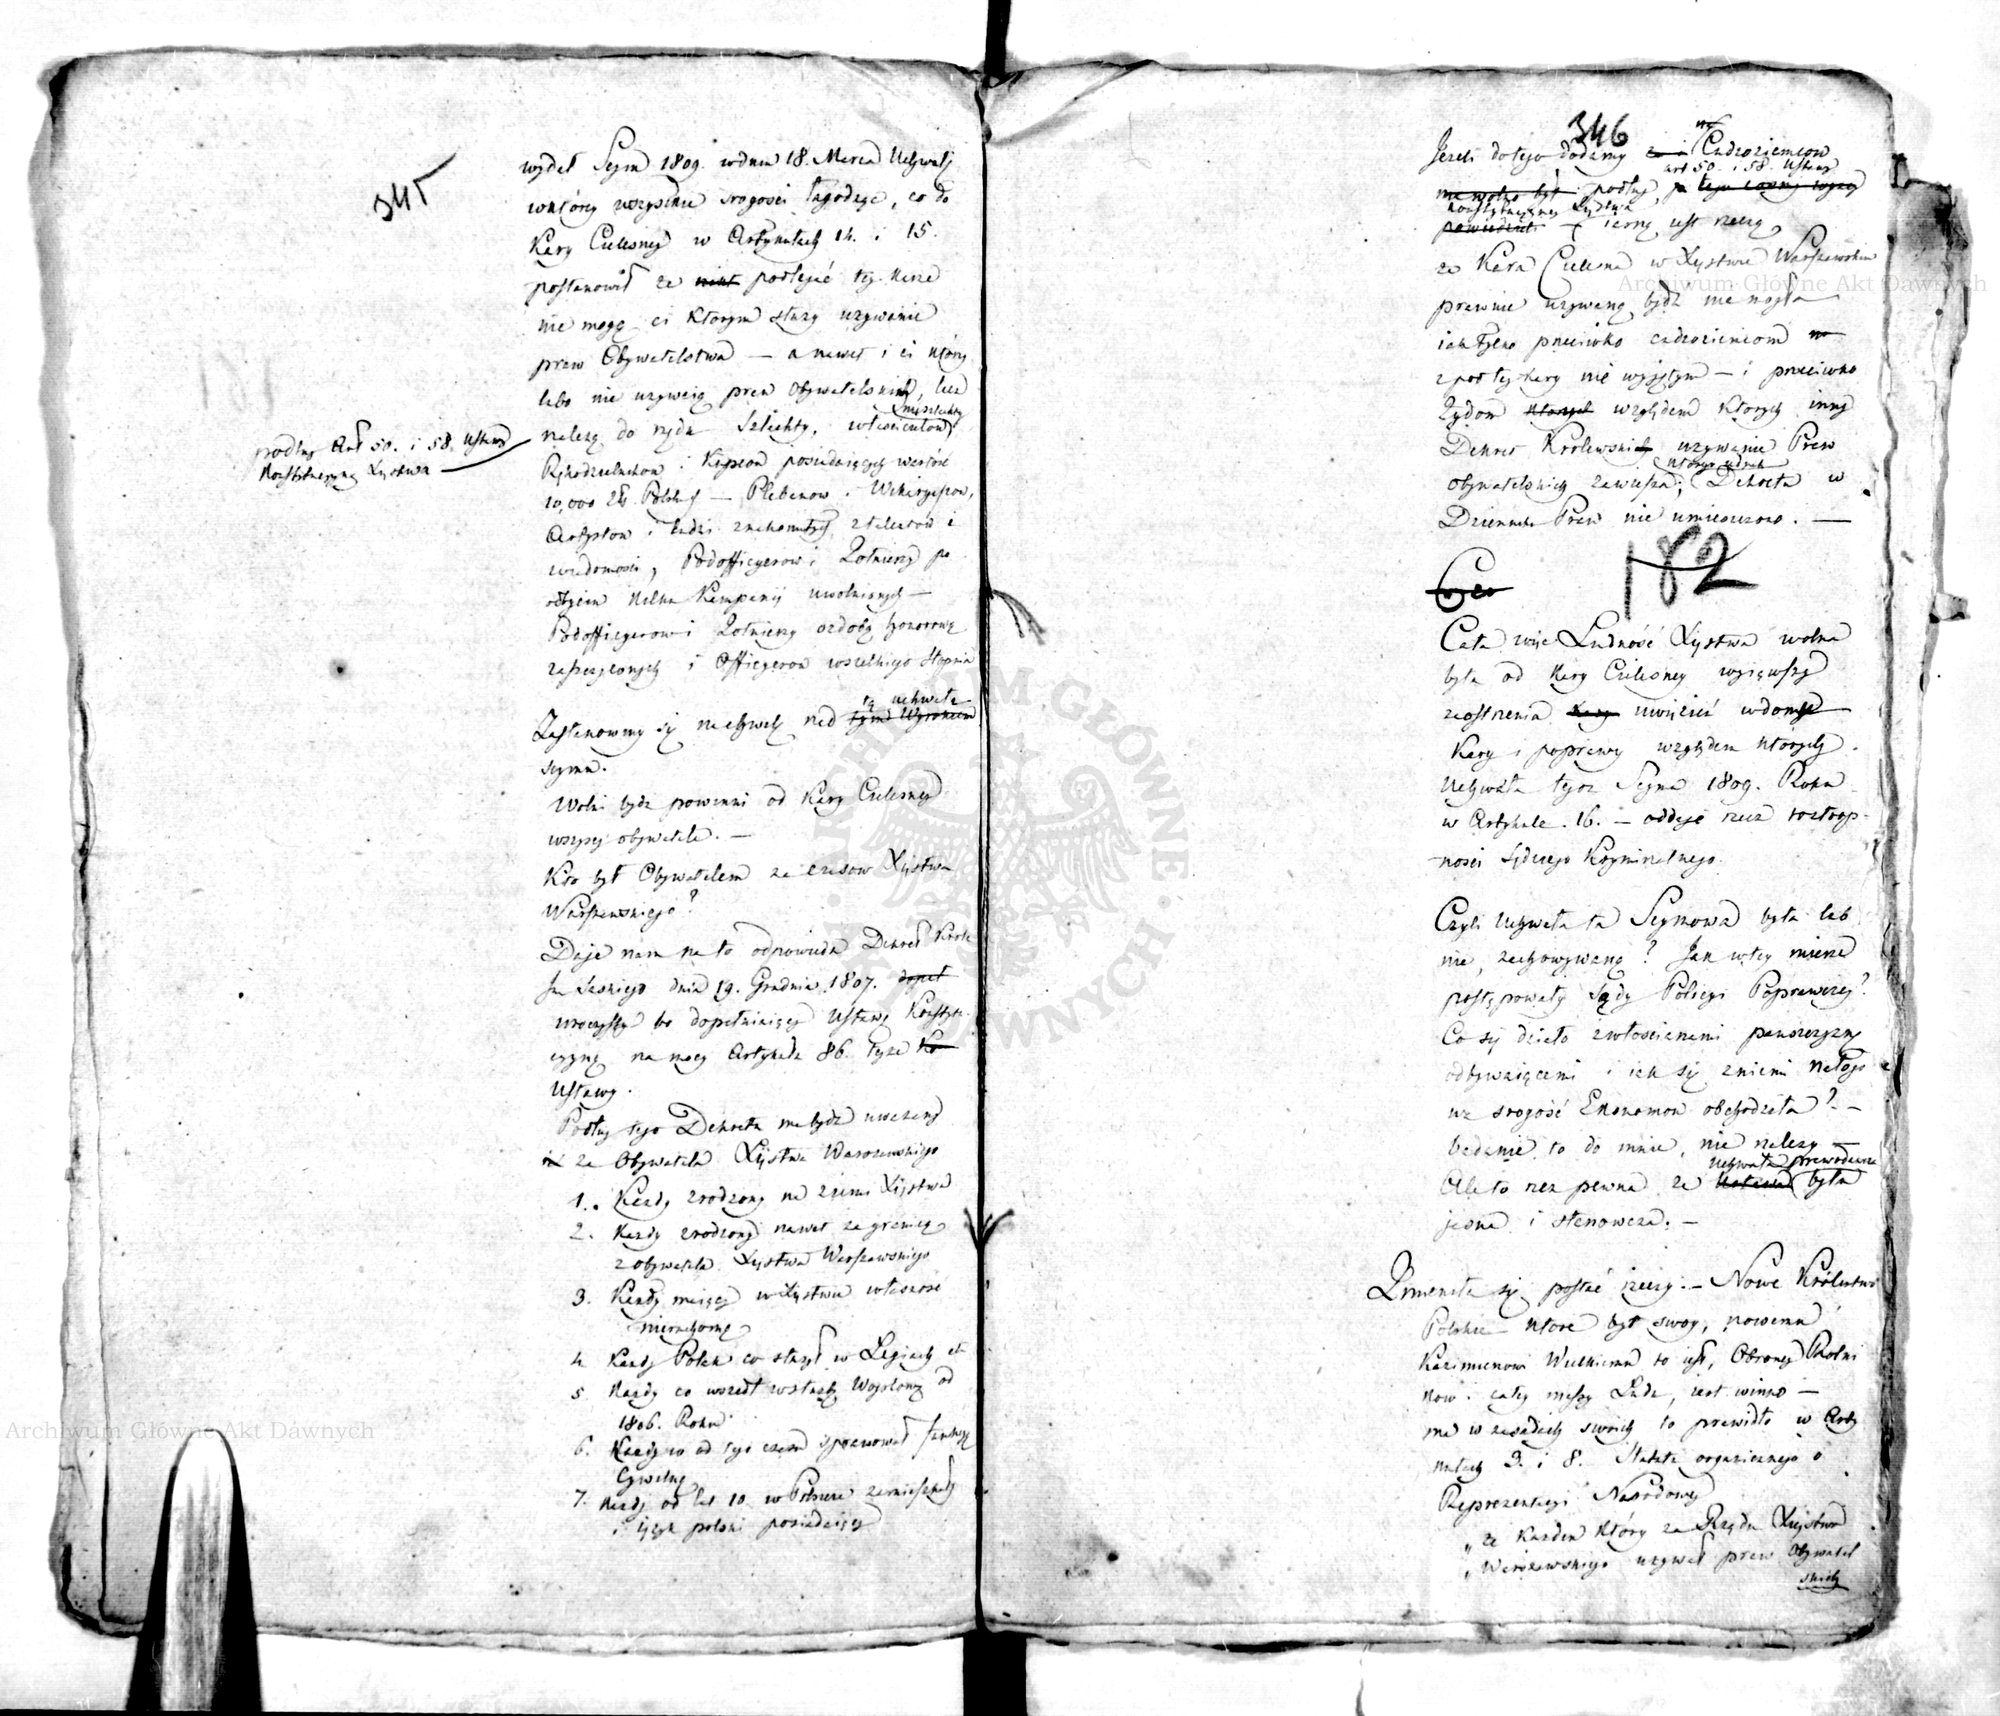 345
wydał Seym 1809. w dniu 18. Marca Uchwałę
w którey wszystkie srogości łagodząc, co do
Kary Cielesney w Artykułach 14. i 15.
postanowił ze podlegać tey karze
nie mogą ci którym służy używanie
praw Obywatelstwa — a nawet i ci którzy
lubo nie używaią praw Obywatelskich, lecz
należą do rzędu Szlachty, włościanów
podług Art 50. i 58. Ustawy
Konstytucyiney Xięstwa
Rękodzielników i Kupców posiadaiących wartość
10,000 Zł. Polskich — Plebanow i Wikaryuszow,
Artystow i ludzi znakomitych z talentów i
wiadomości, Podofficyerow i Żołnierzy po
odbyciu kilku Kampanij uwolnionych —
Podofficyerow i Żołnierzy ozdobą honorową
zaszczyconych i Officyerow wszelkiego stopnia
tą uchwałą
Zastanowmy się na chwilę nad tym Wyrokiem
seymu.
Wolni bydź powinni od Kary Cielesney
wszyscy obywatele. —
Kto był Obywatelem za czasow Xięstwa
Warszawskiego?
Daie nam na to odpowiedź Dekret Króla
Saskiego dnia 19. Grudnia 1807.
uroczysty bo dopełniaiący Ustawę Konstytu-
cyyną na mocy Artykułu 86. teyże
Ustawy.
Podług tego Dekretu ma bydź uważany
za Obywatela Xięstwa Warszawskiego
1. Każdy zrodzony na ziemi Xięstwa
2. Każdy zrodzony nawet za granicą
z obywatela Xięstwa Warszawskiego
3. Każdy maiący w Xięstwie własność
nieruchomą
4. Każdy Polak co służył w Legiach
5. Każdy co wszedł w służbę Woyskową od
1806. Roku
6. Każdy co od tego czasu sprawował funkcyę
Cywilną
7. Każdy od lat 10 w Polszcze zamieszkały
i ięzyk polski posiadaiący
346
Jeżeli do tego dodamy Cudzoziemcow
art 50. i 58. Ustawy
podług
Konstytucyiney Xięstwa
iasną iest rzeczą
ze Kara Cielesna w Xięstwie Warszawskim
prawnie używaną bydź nie mogła
iak tylko przeciwko cudzoziemcom
z pod tey kary nie wyiętym — i przeciwko
Żydom których względem których inny
Dekret Królewski używanie Praw
obywatelskich zawiesza; Dekreta w
Dzienniku Praw nie umieszczono. —
182
Cała więc Ludność Xięstwa wolna
była od Kary Cielesney wyiąwszy
zaostrzenia uwięzień w domach
Kary i poprawy względem których
Uchwała tegoż Seymu 1809. Roku
w Artykule. 16. — oddaje rzecz roztrop-
ności Sędziego Kryminalnego.
Czyli Uchwała ta Seymowa była lub
nie, zachowywaną? Jak w tey mierze
postępowały Sądy Policyi Poprawczey?
Co się działo z włościanami pańszczyznę
odbywaiącemi i iak się z niemi nałogo
wa srogość Ekonomow obchodziła? —
badanie to do mnie, nie należy —
Uchwała prawodawcza
Ale to rzecz pewna ze Ustawa była
jasna i stanowcza. —
Zmieniła się postać rzeczy. — Nowe Królestwo
Polskie które byt swoy, powemu
Kazimierzowi Wielkiemu to iest, Obrońcy Rolni
kow i całey massy Ludu, iest winno —
ma w zasadach swoich to prawidło w Arty
kułach 3. i 8. Statutu organicznego o
Reprezentacyi Narodowey
„ ze Każden który za Rządu Xięstwa
„ Warszawskiego używał praw Obywatel
skich
Archiwum Główne Akt Dawnych
Archiwum Główne Akt Dawnych
ARCHIWUM GŁÓWNE AKT DAWNYCH